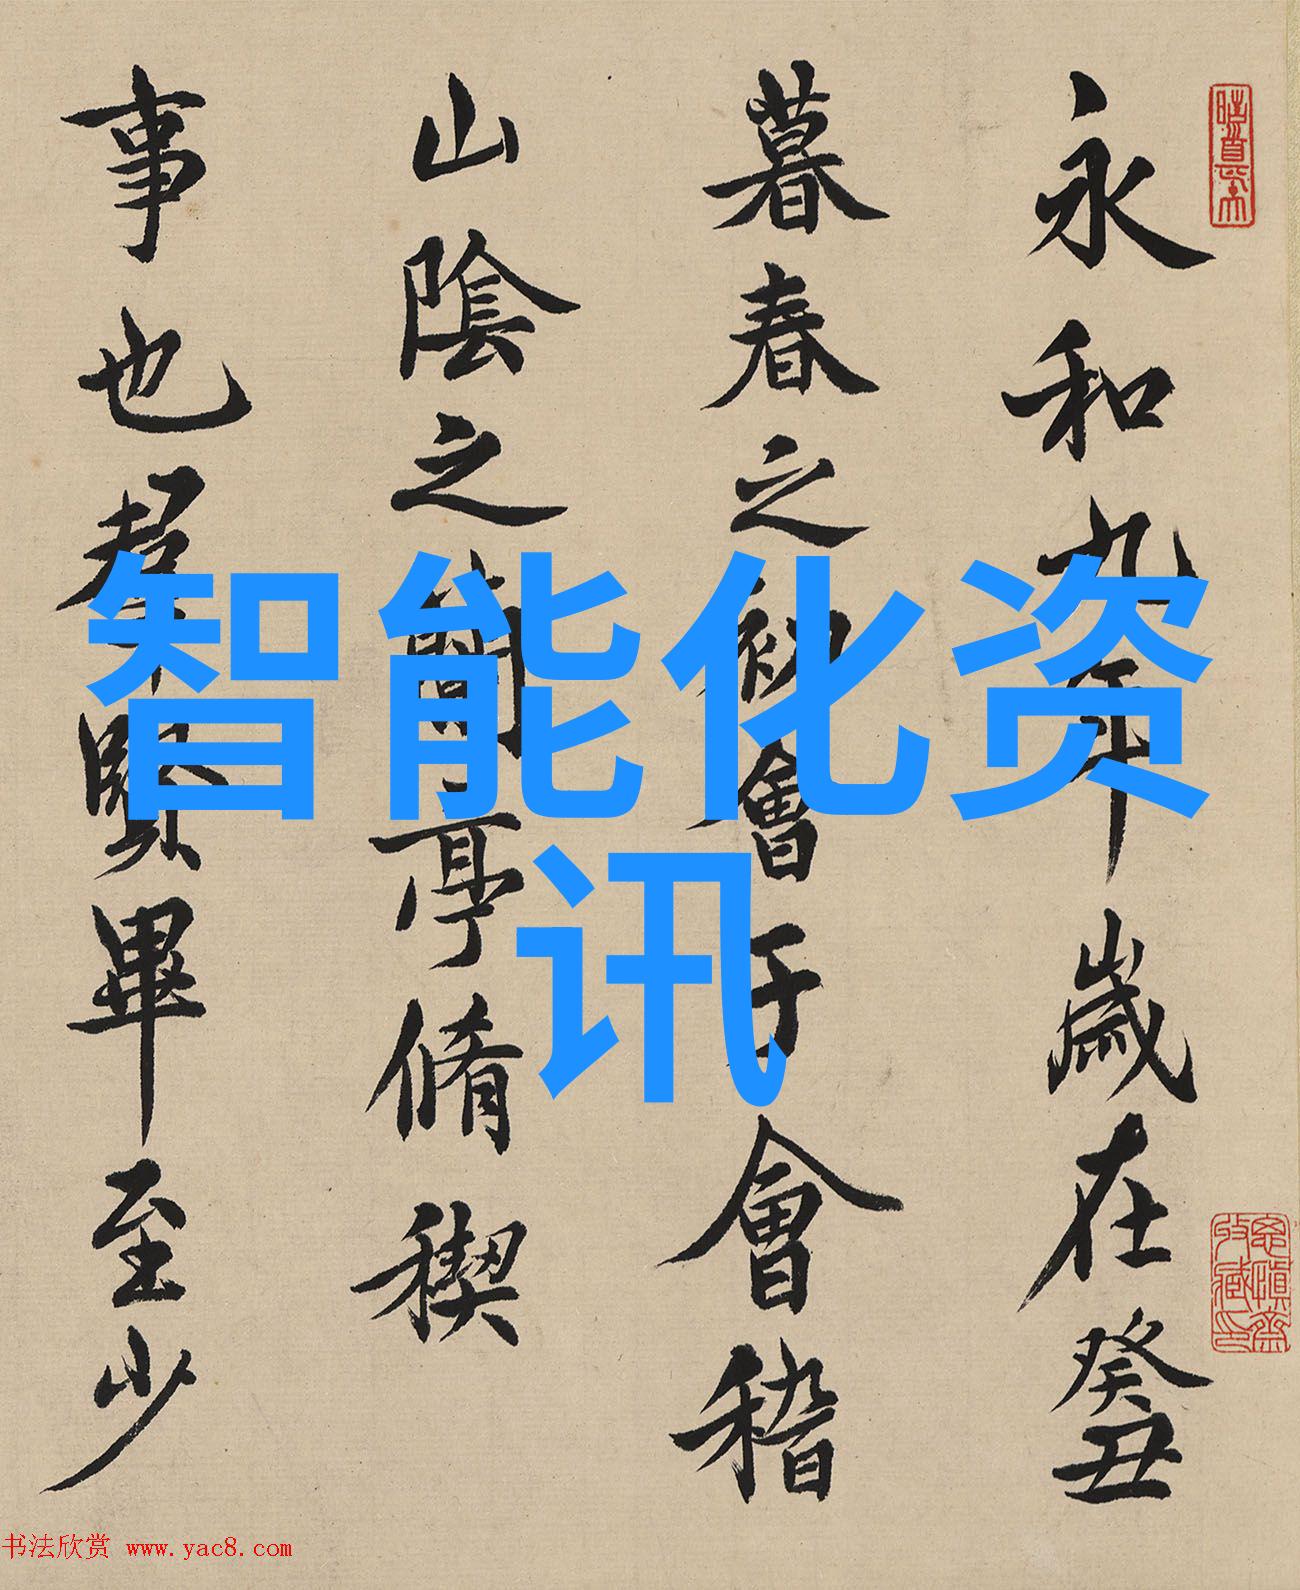 永和九年歲在癸丑
暮春之初會于會稽
山陰之蘭亭脩稧
事也羣賢畢至少
智能化资
讯
书法欣赏 www.yac8.com